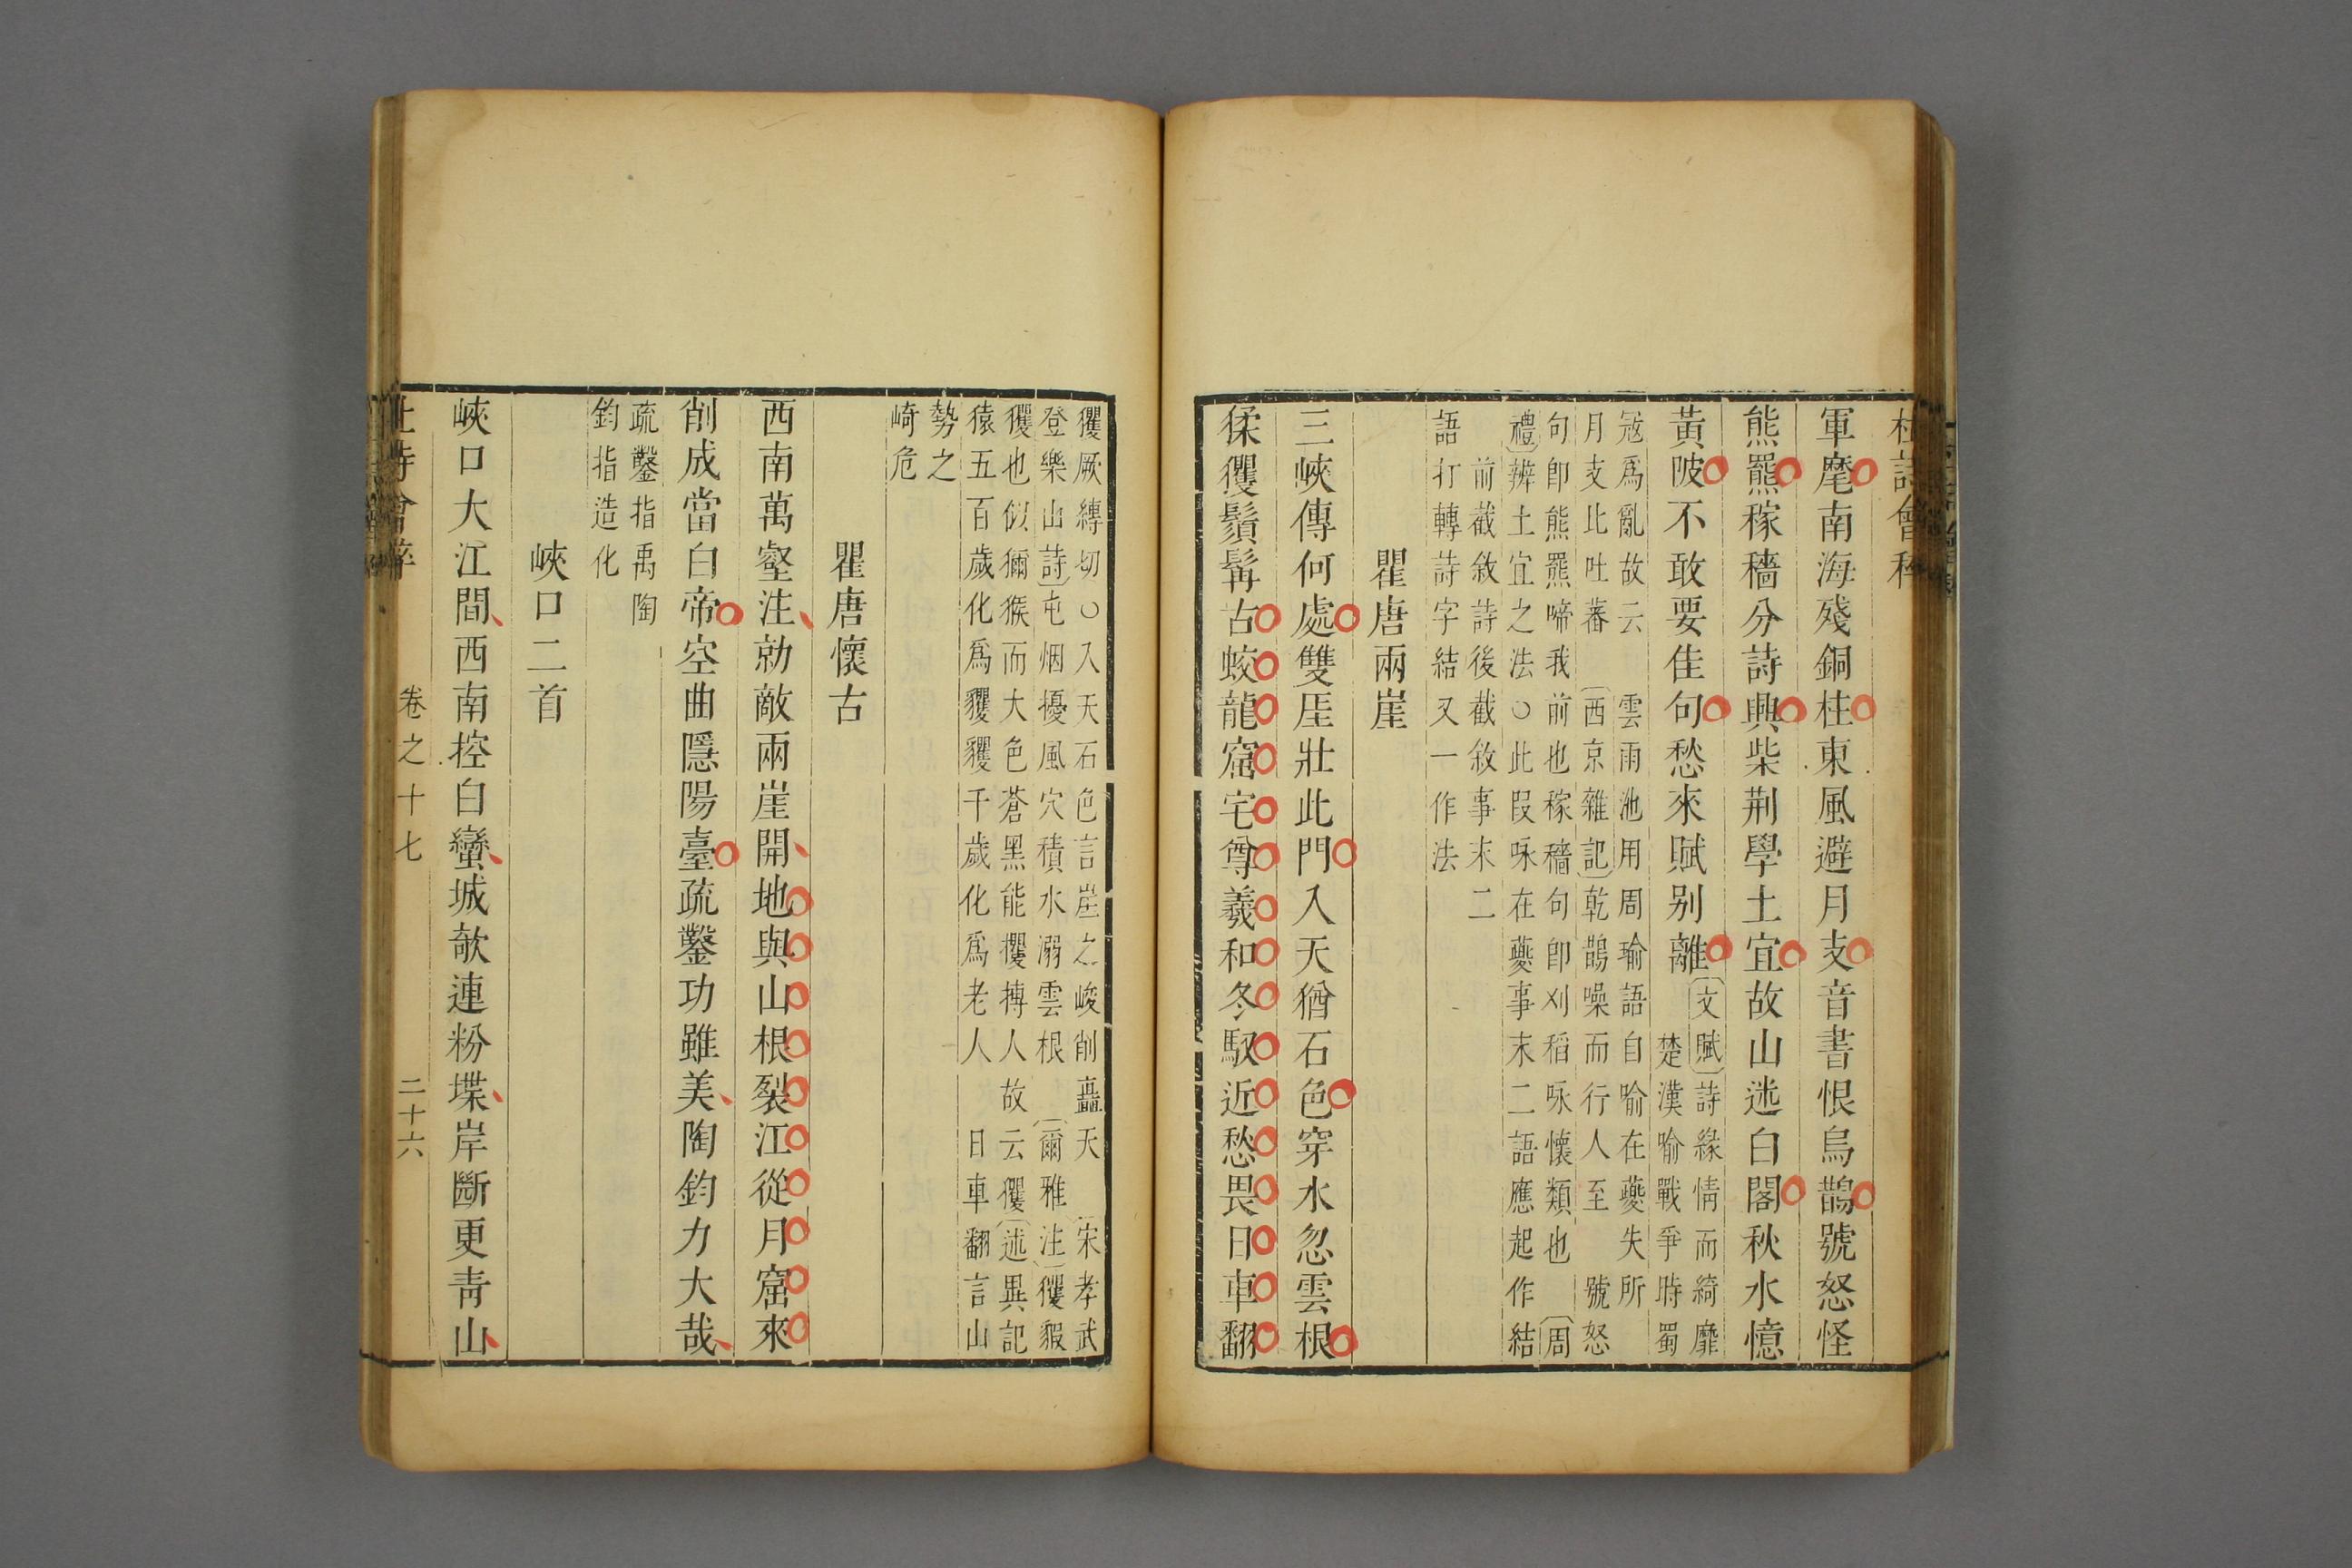 杜詩會稡
軍麾南海殘銅柱東風避月支音書恨烏鵲號怒怪
熊羆稼穡分詩興柴荆學土宜故山迷白閣秋水憶
黃陂不敢要佳句愁來賦别離
〔文賦〕詩緣情而綺靡
楚漢喻戰爭時蜀
冦爲亂故云 雲雨池用周瑜語自喻在夔失所
月支比吐蕃 〔西京雜記〕乾鵲噪而行人至 號怒
句卽熊羆啼我前也稼穡句卽刈稻咏懷類也 〔周
禮〕辨土宜之法○此叚咏在夔事末二語應起作結
前截敘詩後截敘事末二
語打轉詩字結又一作法
瞿唐兩崖
三峽傳何處雙厓壯此門入天猶石色穿水忽雲根
猱玃鬚髯古蛟龍窟宅尊羲和冬馭近愁畏日車翻
玃厥縳切○入天石色言崖之峻削矗天 宋孝武
登樂山詩〕屯烟擾風穴積水溺雲根 〔爾雅注〕玃貑
玃也似獼猴而大色蒼黑能攫搏人故云玃〔述異記
猿五百歲化爲玃玃千歲化爲老人 日車翻言山
勢之
崎危
瞿唐懷古
西南萬壑注勍敵兩崖開地與山根裂江從月窟來
削成當白帝空曲隱陽臺疏鑿功雖美陶鈞力大哉
疏鑿指禹陶
鈞指造化
峽口二首
峽口大江間西南控白蠻城欹連粉堞岸斷更靑山
杜詩會稡 卷之十七 二十六